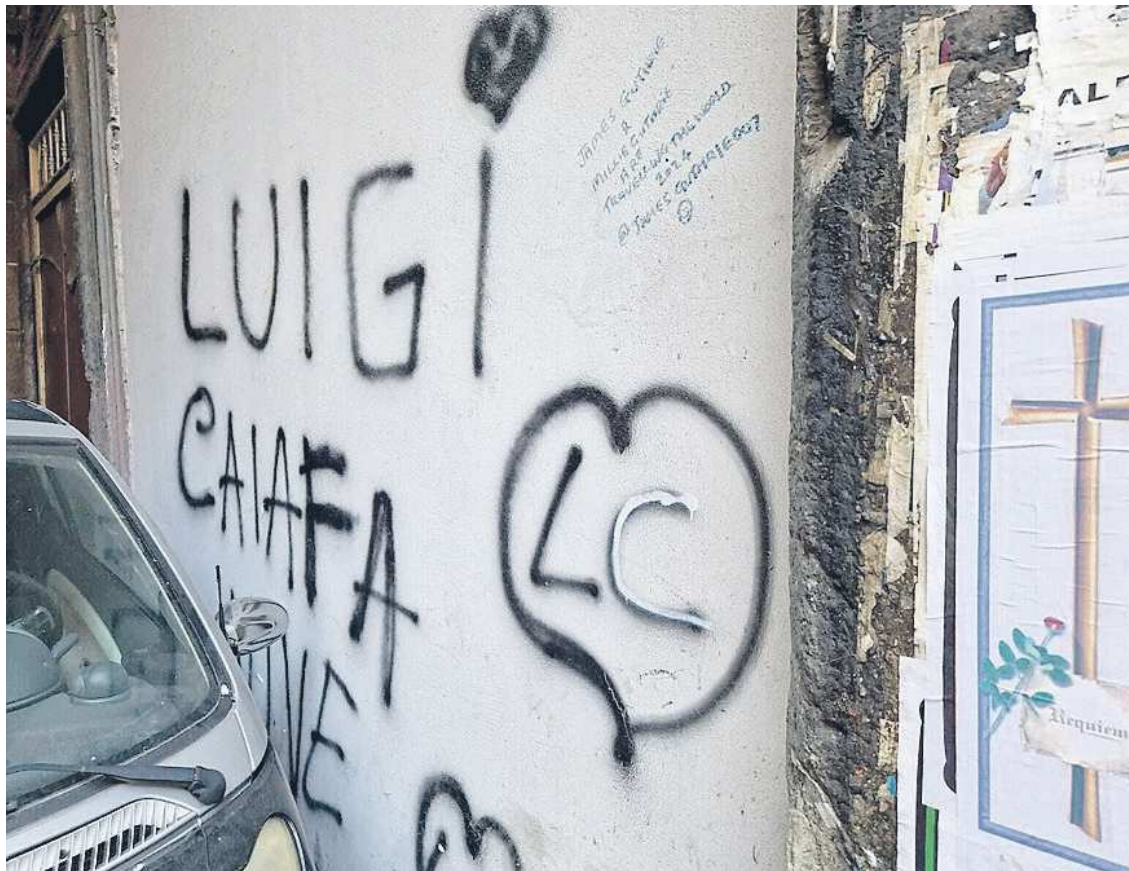 LUIGI
CAIAFA
VIVE
LC
JAMES GUTHRIE
&
MILLIE GUTHRIE
ARE
TRAVELLING THE WORLD
2024
@JAMES.GUTHRIE007
AL
Requiem